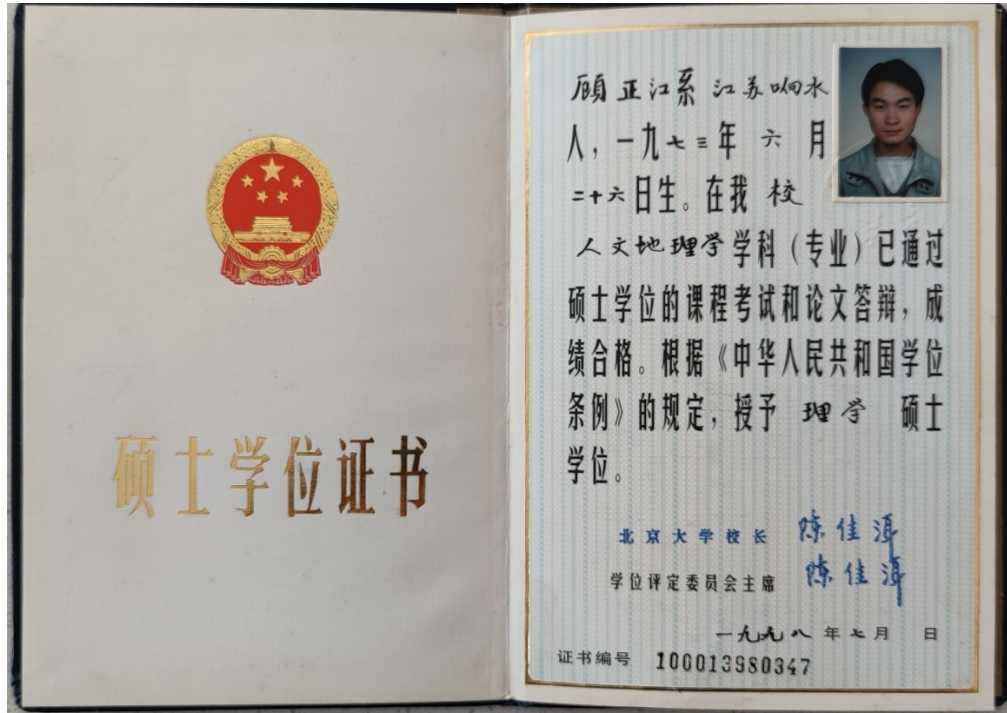 硕士学位证书
顾正江系江苏响水
人，一九七三年六月
二十六日生。在我校
人文地理学学科（专业）已通过
硕士学位的课程考试和论文答辩，成
绩合格。根据《中华人民共和国学位
条例》的规定，授予理学硕士
学位。
北京大学校长 陈佳洱
学位评定委员会主席 陈佳洱
一九九八年七月 日
证书编号 100013980347